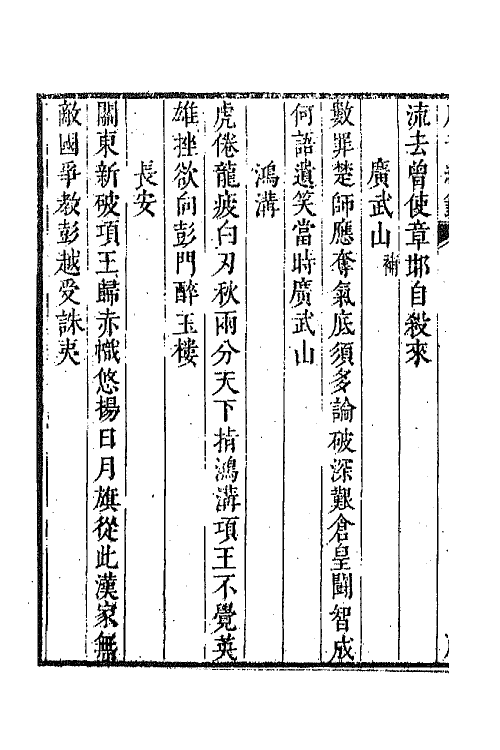 流去曾使章邯自殺來
廣武山 補
數罪楚師應奪氣底須多論破深艱倉皇鬪智成
何語遺笑當時廣武山
鴻溝
虎倦龍疲白刃秋兩分天下指鴻溝項王不覺英
雄挫欲向彭門醉玉樓
長安
關東新破項王歸赤幟悠揚日月旗從此漢家無
敵國爭教彭越受誅夷